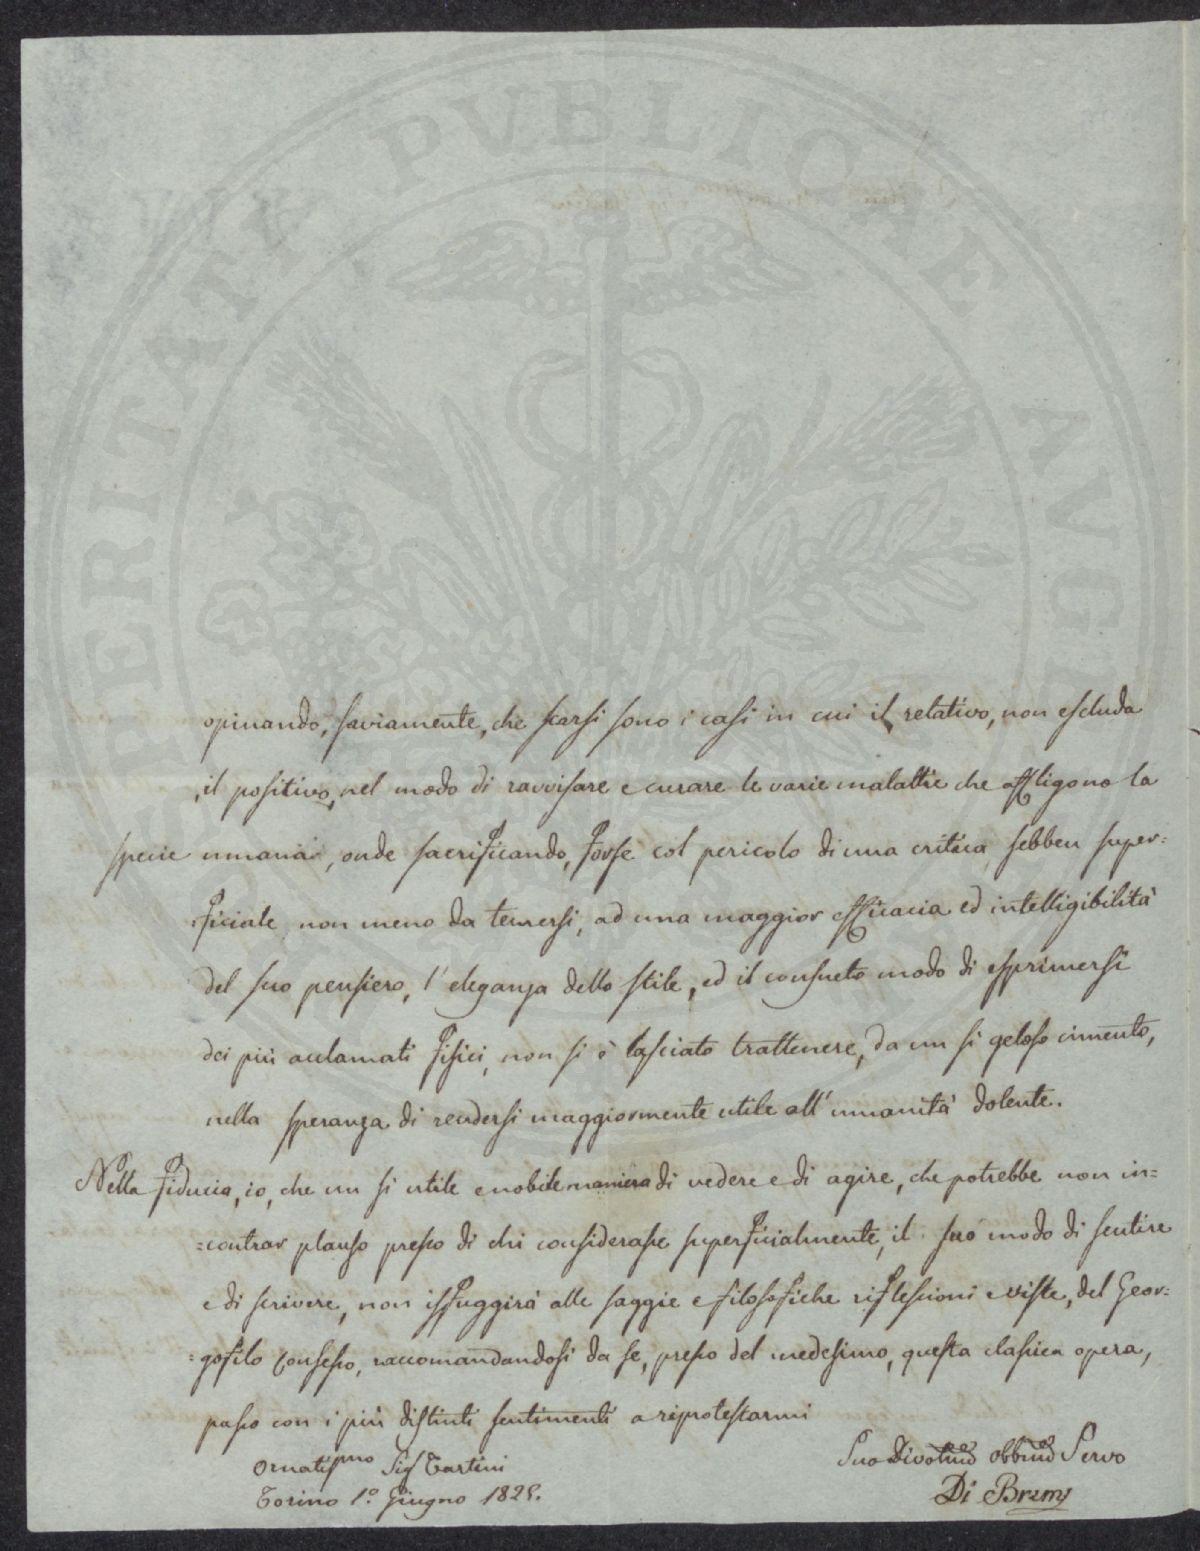 PROSPERITATI PVBLICAE AVGENDAE
opinando, saviamente, che scarsi sono i casi in cui il relativo, non escluda
il positivo, nel modo di ravvisare e curare le varie malattie che affligono la
specie umana, onde sacrificando, forse col pericolo di una critica sebben super=
ficiale non meno da temersi, ad una maggior efficacia ed intelligibilità
del suo pensiero, l'eleganza dello stile, ed il consueto modo di esprimersi
dei più aclamati fisici, non si è lasciato trattenere, da un si geloso cimento,
nella speranza di rendersi maggiormente utile all'umanità dolente.
Nella fiducia, io, che un si utile e nobile maniera di vedere e di agire, che potrebbe non in=
=contrar plauso presso di chi considerasse superficialmente, il suo modo di sentire
e di scrivere, non isfuggirà alle saggie e filosofiche riflessioni e viste, del Geor=
=gofilo Consesso, raccomandandosi da se, presso del medesimo, questa classica opera,
passo con i più distinti sentimenti a riprotestarmi
Suo Divotmo Obbmo Servo
Di Breme
Ornatismo Sig Tartini
Torino 1.o Giugno 1825.